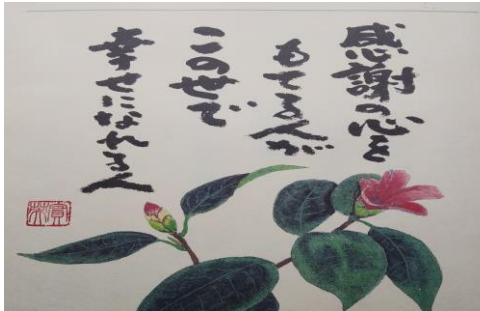 感謝の心を
もてる人が
この世で
幸せになれる人